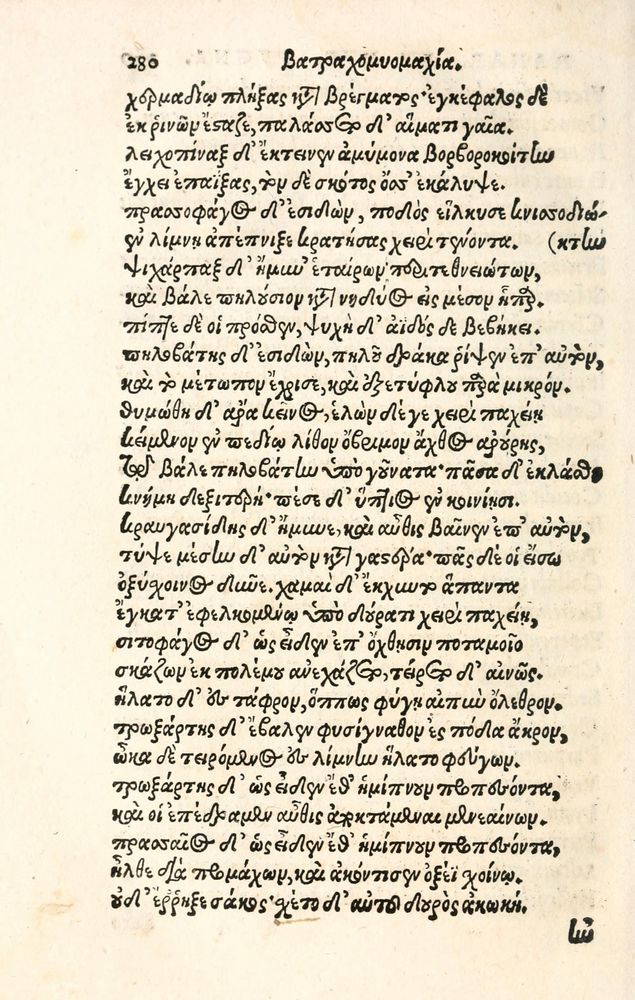 280 Βατραχομυομαχία.
χερμαδίῳ πλήξας κατὰ βρέγματος· ἐγκέφαλος δὲ
ἐκ ῥινῶν ἔσταζε, παλάσσετο δ' αἵματι γαῖα.
λειχοπίναξ δ' ἔκτεινεν ἀμύμονα βορβοροκοίτην
ἔγχει ἐπαΐξας, τὸν δὲ σκότος ὄσσ' ἐκάλυψε.
πρασσοφάγος δ' ἐσιδὼν, ποδὸς εἵλκυσε κνισσοδιώ-
ἐν λίμνῃ ἀπέπνιξε κρατήσας χειρὶ τένοντα. (κτην
ψιχάρπαξ δ' ἤμυν' ἑταίρων περὶ τεθνειώτων,
καὶ βάλε πηλούσιον κατὰ νηδύος ἐς μέσον ἧπαρ.
πίπτε δέ οἱ πρόσθεν, ψυχὴ δ' ἀϊδόσδε βεβήκει.
πηλοβάτης δ' ἐσιδὼν, πηλοῦ δράκα ῥίψεν ἐπ' αὐτὸν,
καὶ τὸ μέτωπον ἔχρισε, καὶ ἐξετύφλου παρὰ μικρόν.
θυμώθη δ' ἄρα κεῖνος, ἑλὼν δέ γε χειρὶ παχείῃ
κείμενον ἐν πεδίῳ λίθον ὄβριμον ἄχθος ἀρούρης,
τῷ βάλε πηλοβάτην ὑπὸ γούνατα· πᾶσα δ' ἐκλάσθη
κνήμη δεξιτερή· πέσε δ' ὕπτιος ἐν κονίῃσι.
κραυγασίδης δ' ἤμυνε, καὶ αὖθις βαῖνεν ἐπ' αὐτὸν,
τύψε μέσην δ' αὐτὸν κατὰ γαστέρα· πᾶς δέ οἱ εἴσω
ὀξύσχοινος δῦνε. χαμαὶ δ' ἔκχυντο ἅπαντα
ἔγκατ' ἐφελκομένῳ ὑπὸ δούρατι χειρὶ παχείῃ,
σιτοφάγος δ' ὡς εἶδεν ἐπ' ὄχθῃσιν ποταμοῖο
σκάζων ἐκ πολέμου ἀνεχάζετο, τείρετο δ' αἰνῶς.
ἥλατο δ' ἐς τάφρον, ὅππως φύγῃ αἰπὺν ὄλεθρον.
τρωξάρτης δ' ἔβαλεν φυσίγναθον ἐς πόδα ἄκρον,
ὦκα δὲ τειρόμενος ἐς λίμνην ἥλατο φεύγων.
τρωξάρτης δ' ὡς εἶδεν ἔθ' ἡμίπνουν προπεσόντα,
καί οἱ ἐπέδραμεν αὖθις ἀποκτάμεναι μενεαίνων.
πρασσαῖος δ' ὡς εἶδεν ἔθ' ἡμίπνουν προπεσόντα,
ἦλθε διὰ προμάχων, καὶ ἀκόντισεν ὀξέϊ σχοίνῳ.
οὐδ' ἔῤῥηξε σάκος· σχέτο δ' αὐτοῦ δουρὸς ἀκωκή.
ἦν